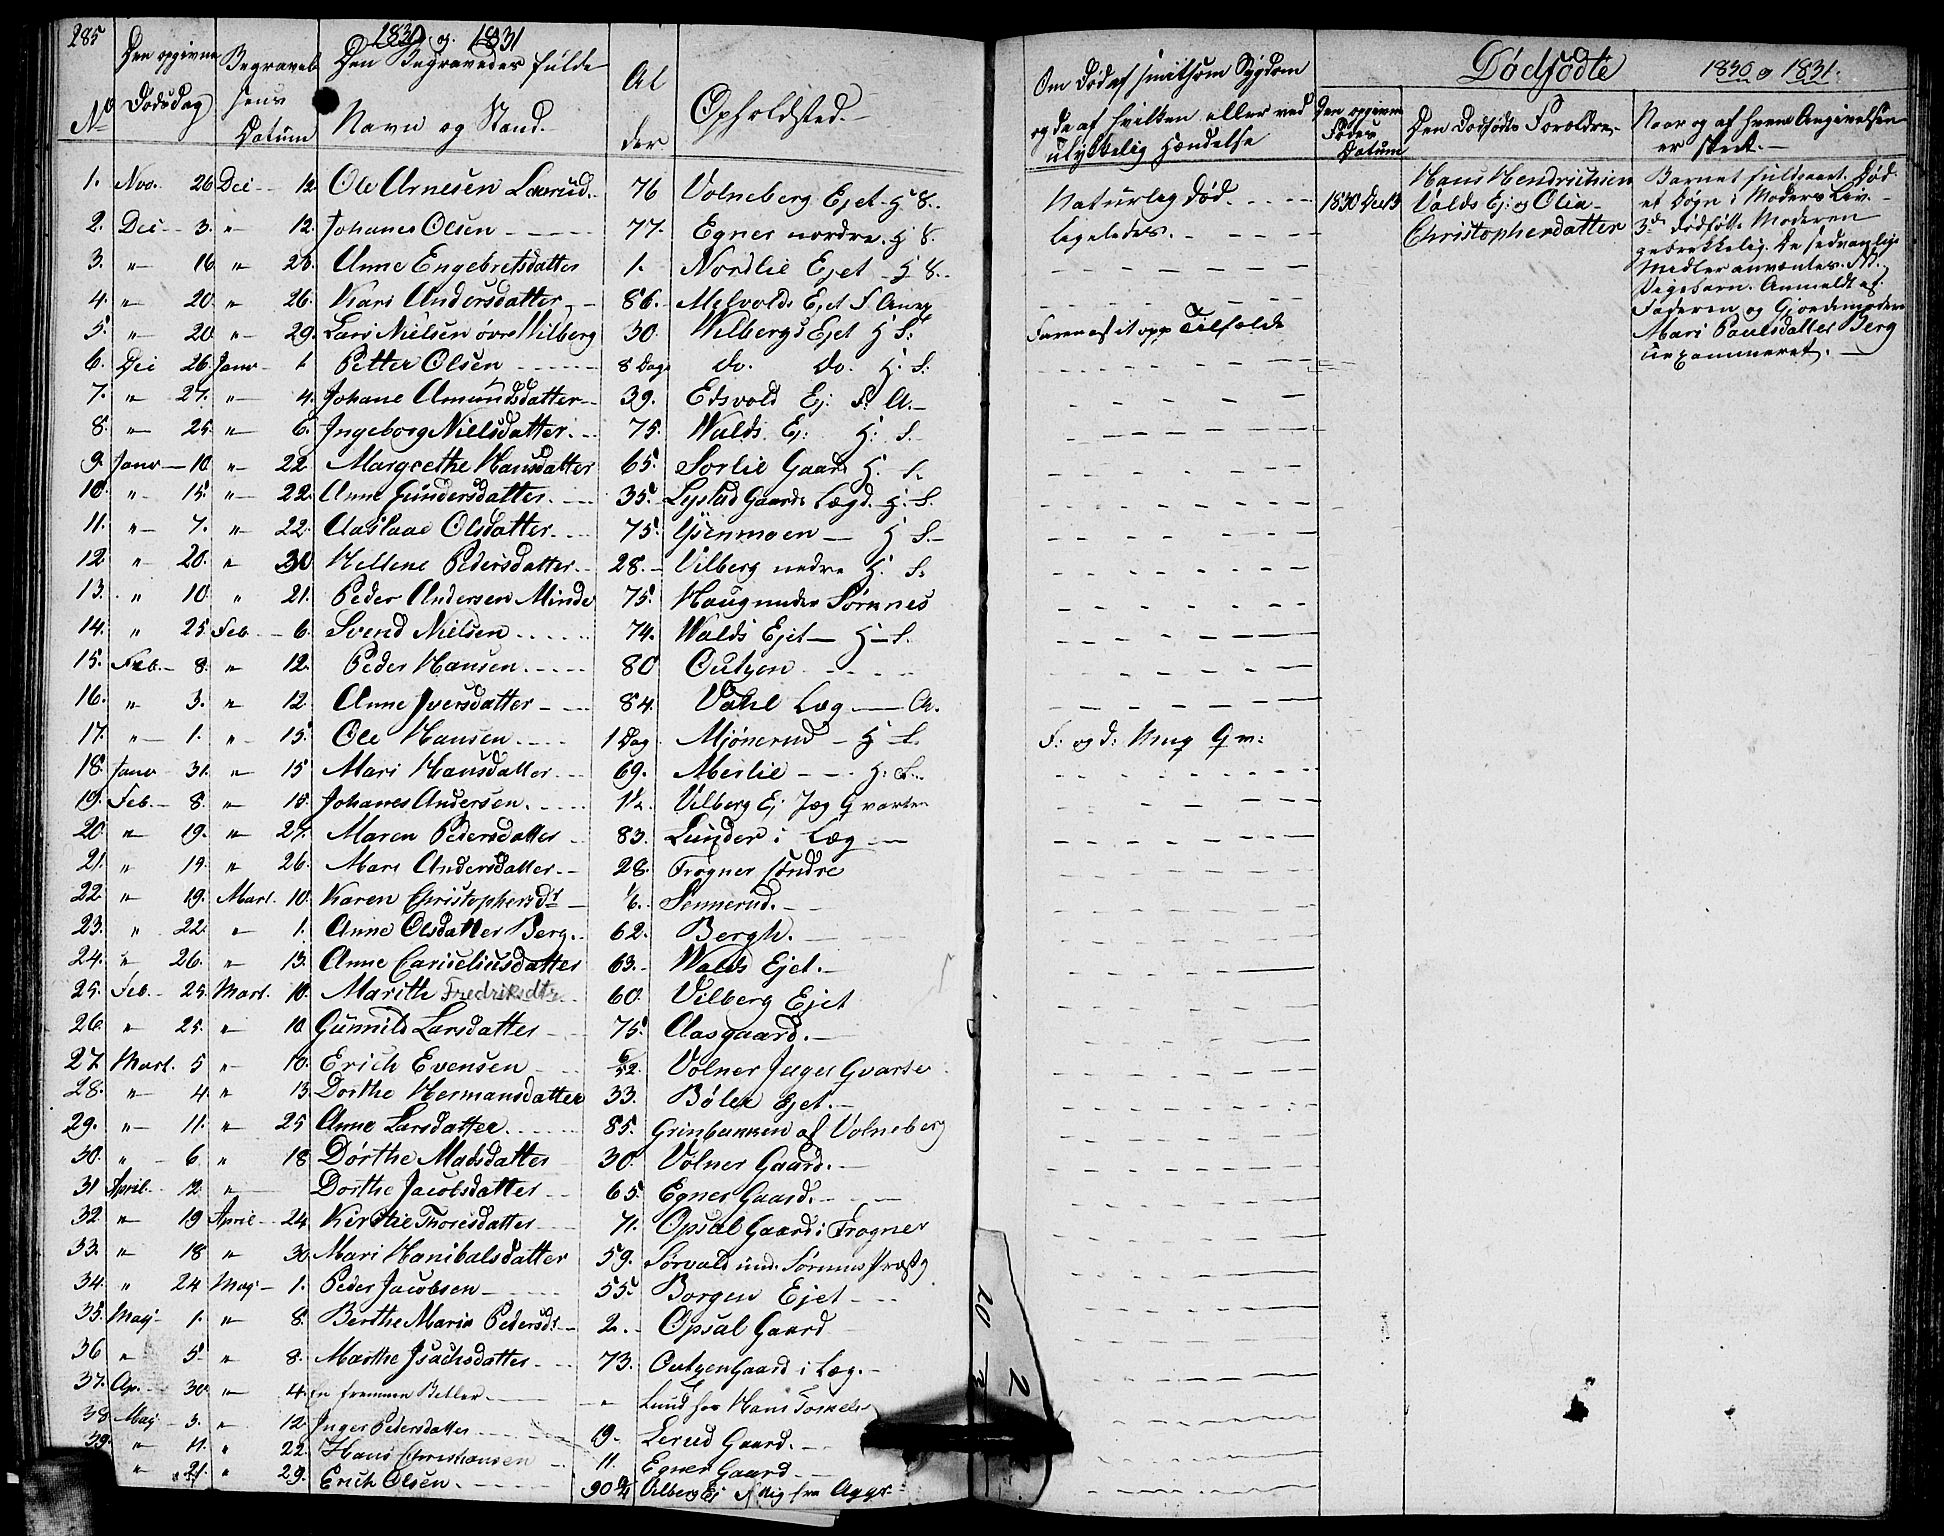 285
1830 og 1831
No
Den opgivne Dødsdag
Begravelsens Datum
Den Begravedes fulde Navn og Stand.
Alder
Opholdsted.
1. Nov. 26 Dec 12 Ole Arnesen 76 Volneberg Ejet H S.
2. Dec 3. " 12. Johanes Olsen 77. Egner nordre. H S.
3. " 16 " 25. Anne Engebretsdatter 1. Nordlie Ejet H S.
4. " 20. " 26. Kari Andersdatter 86. Melvolds Ejet
5. " 20 " 29. Lars Nielsen øvre Wilberg 30. Wilbergs Ejet H S.
6. Dec 26. Janv 1 Petter Olsen 8 Dage do. do. H. S.
7. " 27. " 4. Johane Amundsdatter 39. Edsvold Ej: S. A.
8. " 25 " 6. Ingeborg Nielsdatter. 75. Walds Ej: H: S.
9. Janv 10. " 22. Margrethe Hansdatter 65. Sorlie Gaard H. S.
10. " 15. " 22. Anne Gundersdatter. 35. Gaards Lægd. H. S.
11. " 7. " 22. Aaslaae Olsdatter. 75. H S.
12. " 20. " 30 Hellene Pedersdatter. 28. Vilberg nedre H. S.
13. " 10 " 21. Peder Andersen Minde 75. Haug under Sørnnes
14. " 25 Feb. 6. Svend Nielsen 74. Walds Ejet H S.
15. Feb. 8. " 12. Peder Hansen 80 Outzen
16. " 3. " 12. Anne Iversdatter 84. Læg A.
17. " 1. " 15. Ole Hansen 1 Dag Mjønerud H S.
18. Janv 31. " 15 Mari Hansdatter 69. Merlie H. S.
19. Feb. 8. " 15. Johanes Andersen. 1½. Vilberg Ej Jæg Qvarter
20 " 19. " 27. Maren Pedersdatter 83. Lunder i Læg
21. " 19. " 26. Mari Andersdatter 28. Frogner søndre
22 " 19. Mart. 10. Karen Christophersdr 1/6. Sennerud.
23. " 22. " 1. Anne Olsdatter Berg. 62. Bergh.
24. " 26. " 13. Anne Carneliusdatter 63. Walds Ejet.
25. Feb. 25. Mart. 10. Marithe Fredriksdtr. 60. Vilberg Ejet
26. " 25. " 10. Gunnild Larsdatter 75. Aasgaard.
27. Mart. 5 " 10. Erich Evensen 6/52. Volner Jæger Qvarter
28. " 4. " 13. Dorthe Hermansdatter 33. Bøler Ejet.
29. " 11. " 25 Anne Larsdatter. 85. Grinbakken af Volneberg
30. " 6. " 18 Dørthe Madsdatter 30. Volner Gaard.
31 April 12. " Dorthe Jacobsdatter 65. Egner Gaard.
32. " 19 April 24 Kirstie Thoresdatter 71. Opsal Gaard i Frogner
33. " 18 " 30. Mari Hanibalsdatter 59. Sørvald und. Sørnnes Præstg
34. " 24 Maj 1. Peder Jacobsen 55. Borgen Ejet
35. Maj 1. " 8. Berthe Marie Pedersdr 2. Opsal Gaard
36 " 5 " 8. Marthe Isachsdatter 73. Outzen Gaard i Læg.
37. Ap. 30. " 4. En fremmen Betler " Lund hos Hans
38 Maj 3. " 12. Inger Pedersdatter 19. Lerud Gaard.
39. " 11. " 22. Hans Christiansen 11. Egner Gaard
" 21. " 29. Erich Olsen. 90 ¾ Vilberg Ej
Om Død af smitsom Sygdom
og da af hvilken eller ved
ulykkelig Hændelse
Naturlig død.
Ligeledes.
Tilfælde
F: og d:
Dødfødte 1830 og 1831.
Den opgivne Fødsels Datum
Den Dødfødtes Forældre.
Naar og af hvem Angivelsen
er skeet.
1830 Dec 13
Hans Hendrichsen
Valds Ej: og Olia
Christophersdatter
Barnet fuldbaaret. Død
et Døgn i Moders Liv.
3de dødfødte. Moderen
gebrekkelig. De sedvanlige
Midler anvæntes.
Pigebarn. Anmeldt af
Faderen og Gjordemoder
Mari Paulsdatter Berg
examineret.
20 3
2